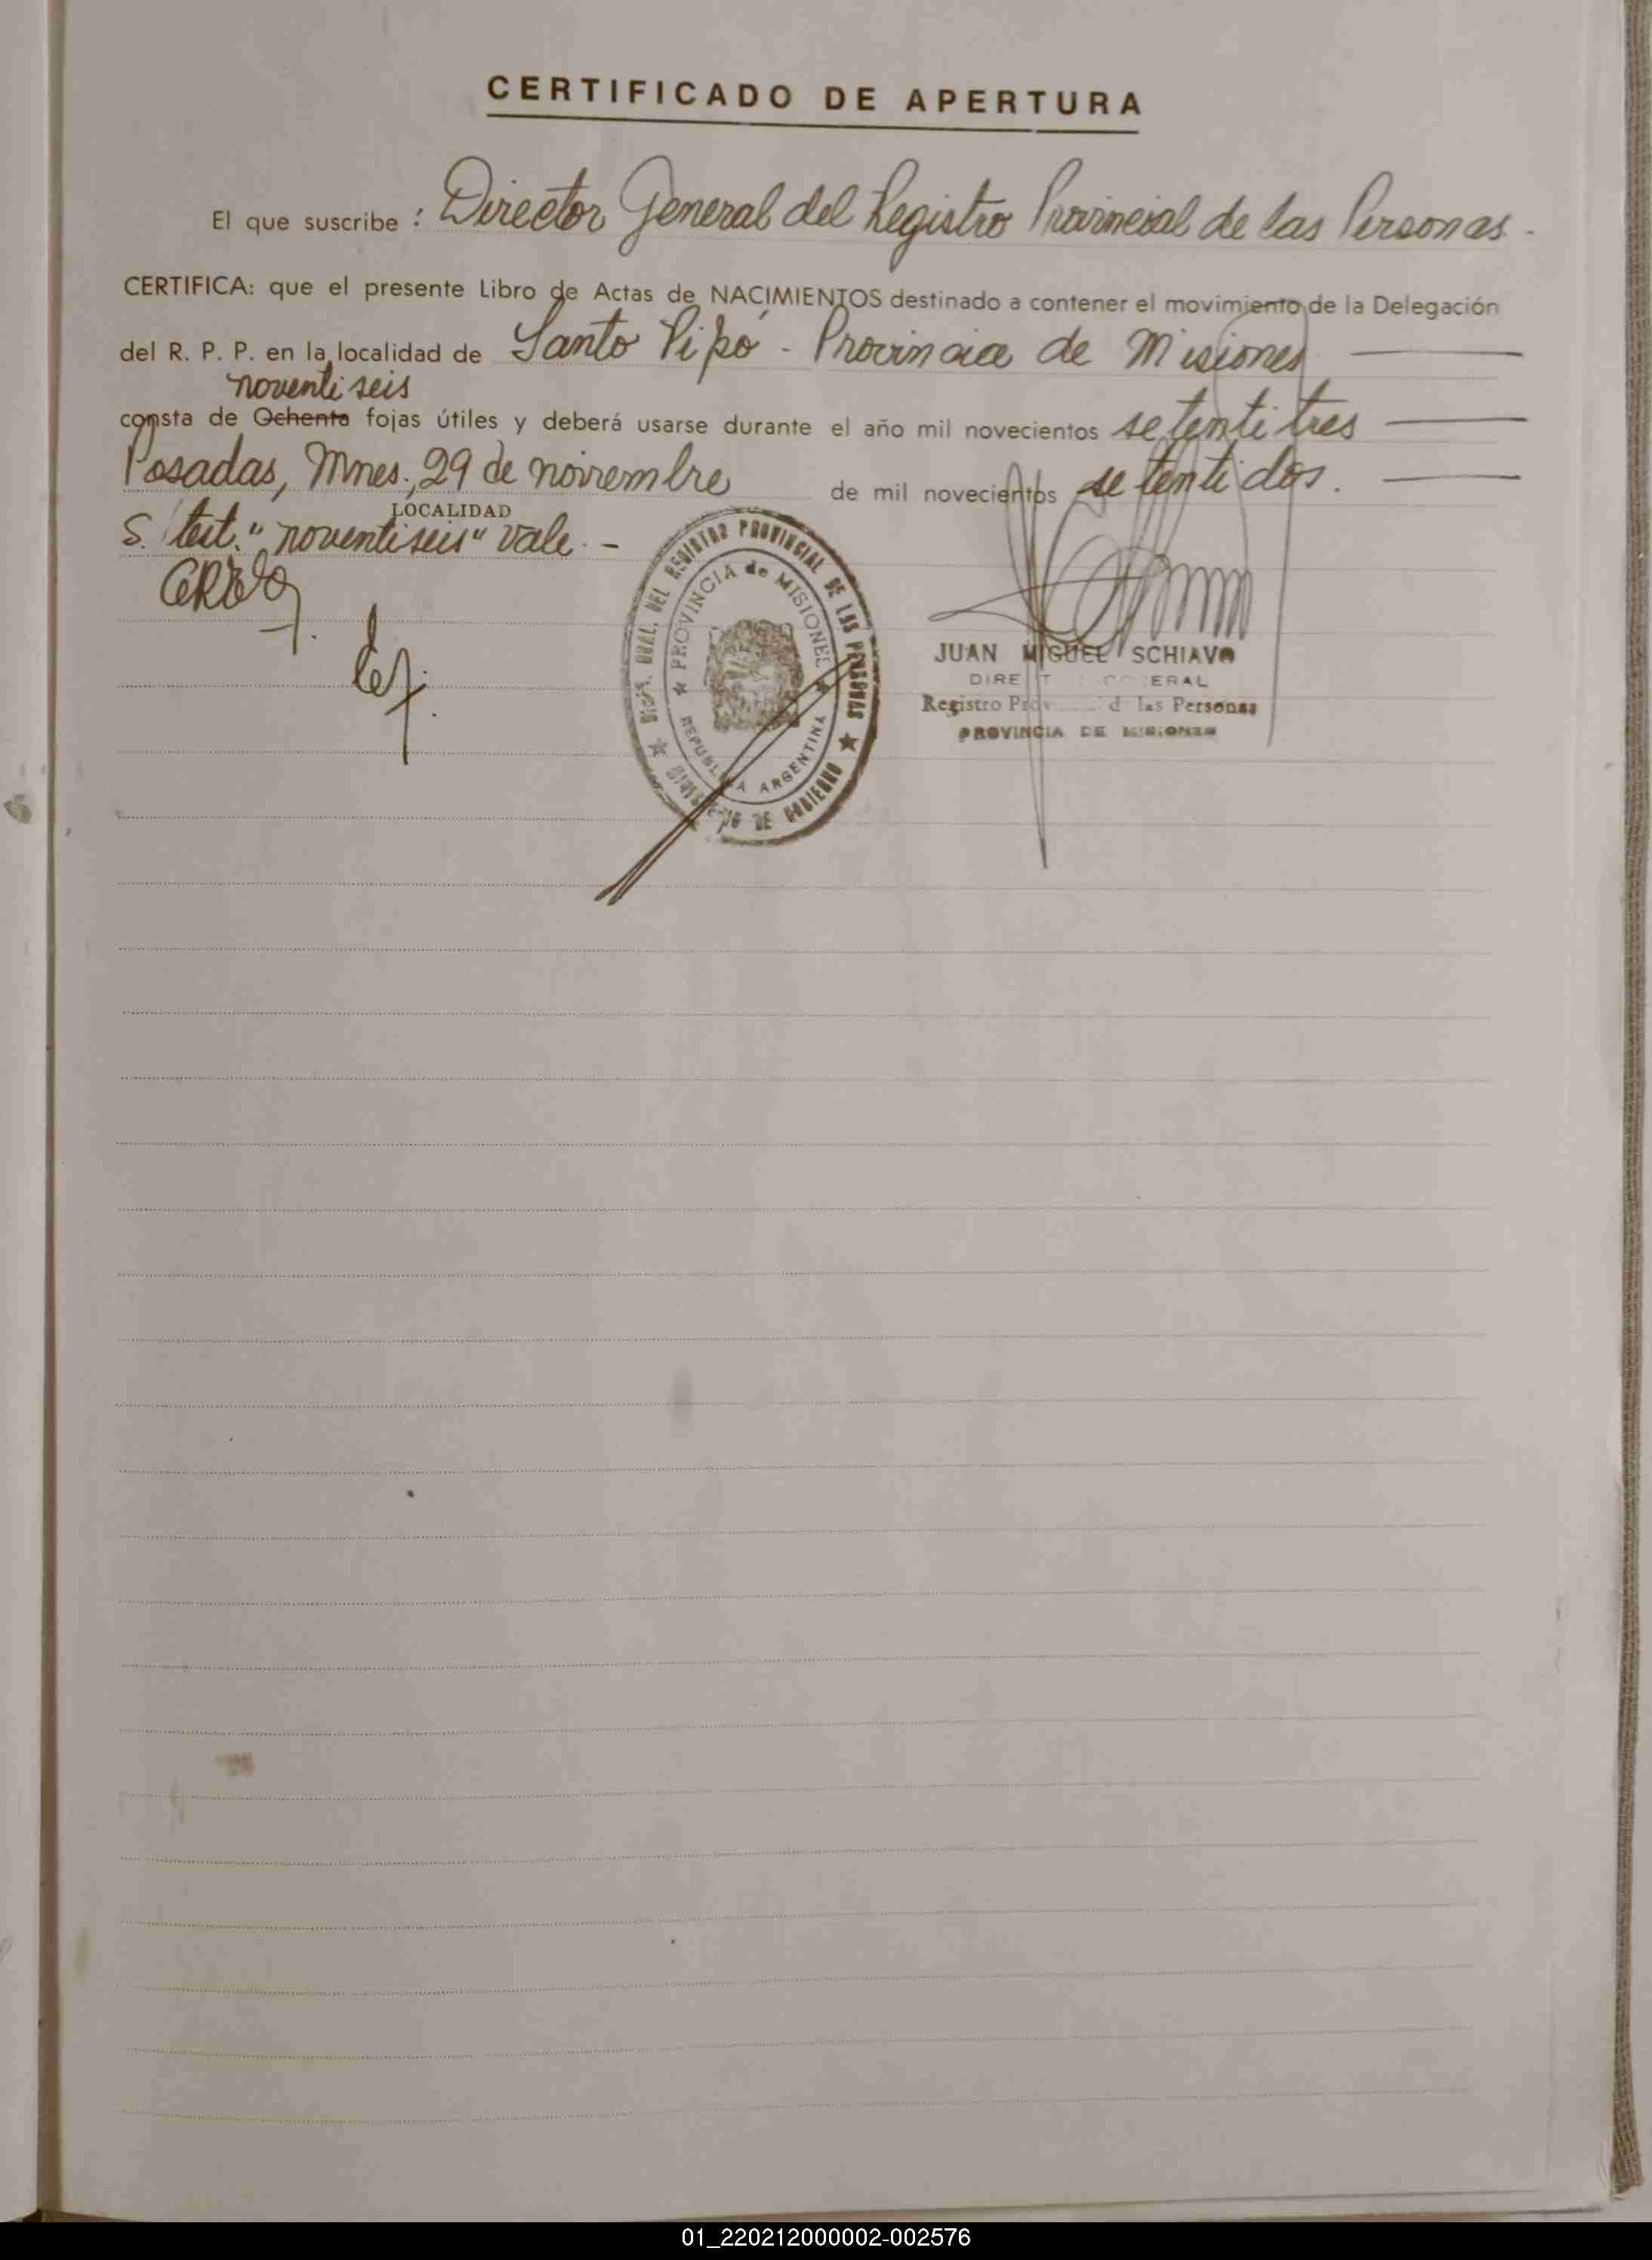 CERTIFICADO DE APERTURA
El que suscribe : Director General del Registro Provincial de las Personas.
CERTIFICA: que el presente Libro de Actas de NACIMIENTOS destinado a contener el movimiento de la Delegación
del R. P. P. en la localidad de Santo Pipó - Provincia de Misiones
noventiseis
consta de Ochenta fojas útiles y deberá usarse durante el año mil novecientos setentitres
Posadas, Mnes., 29 de noviembre de mil novecientos setentidos.
LOCALIDAD
S. test. "noventiseis" vale. -
DEL REGISTRO PROVINCIAL DE LAS PERSONAS
PROVINCIA de MISIONES
REPUBLICA ARGENTINA
MINISTERIO DE GOBIERNO
JUAN MIGUEL SCHIAVO
DIRECTOR GENERAL
Registro Prov. d las Personas
PROVINCIA DE MISIONES
01_220212000002-002576